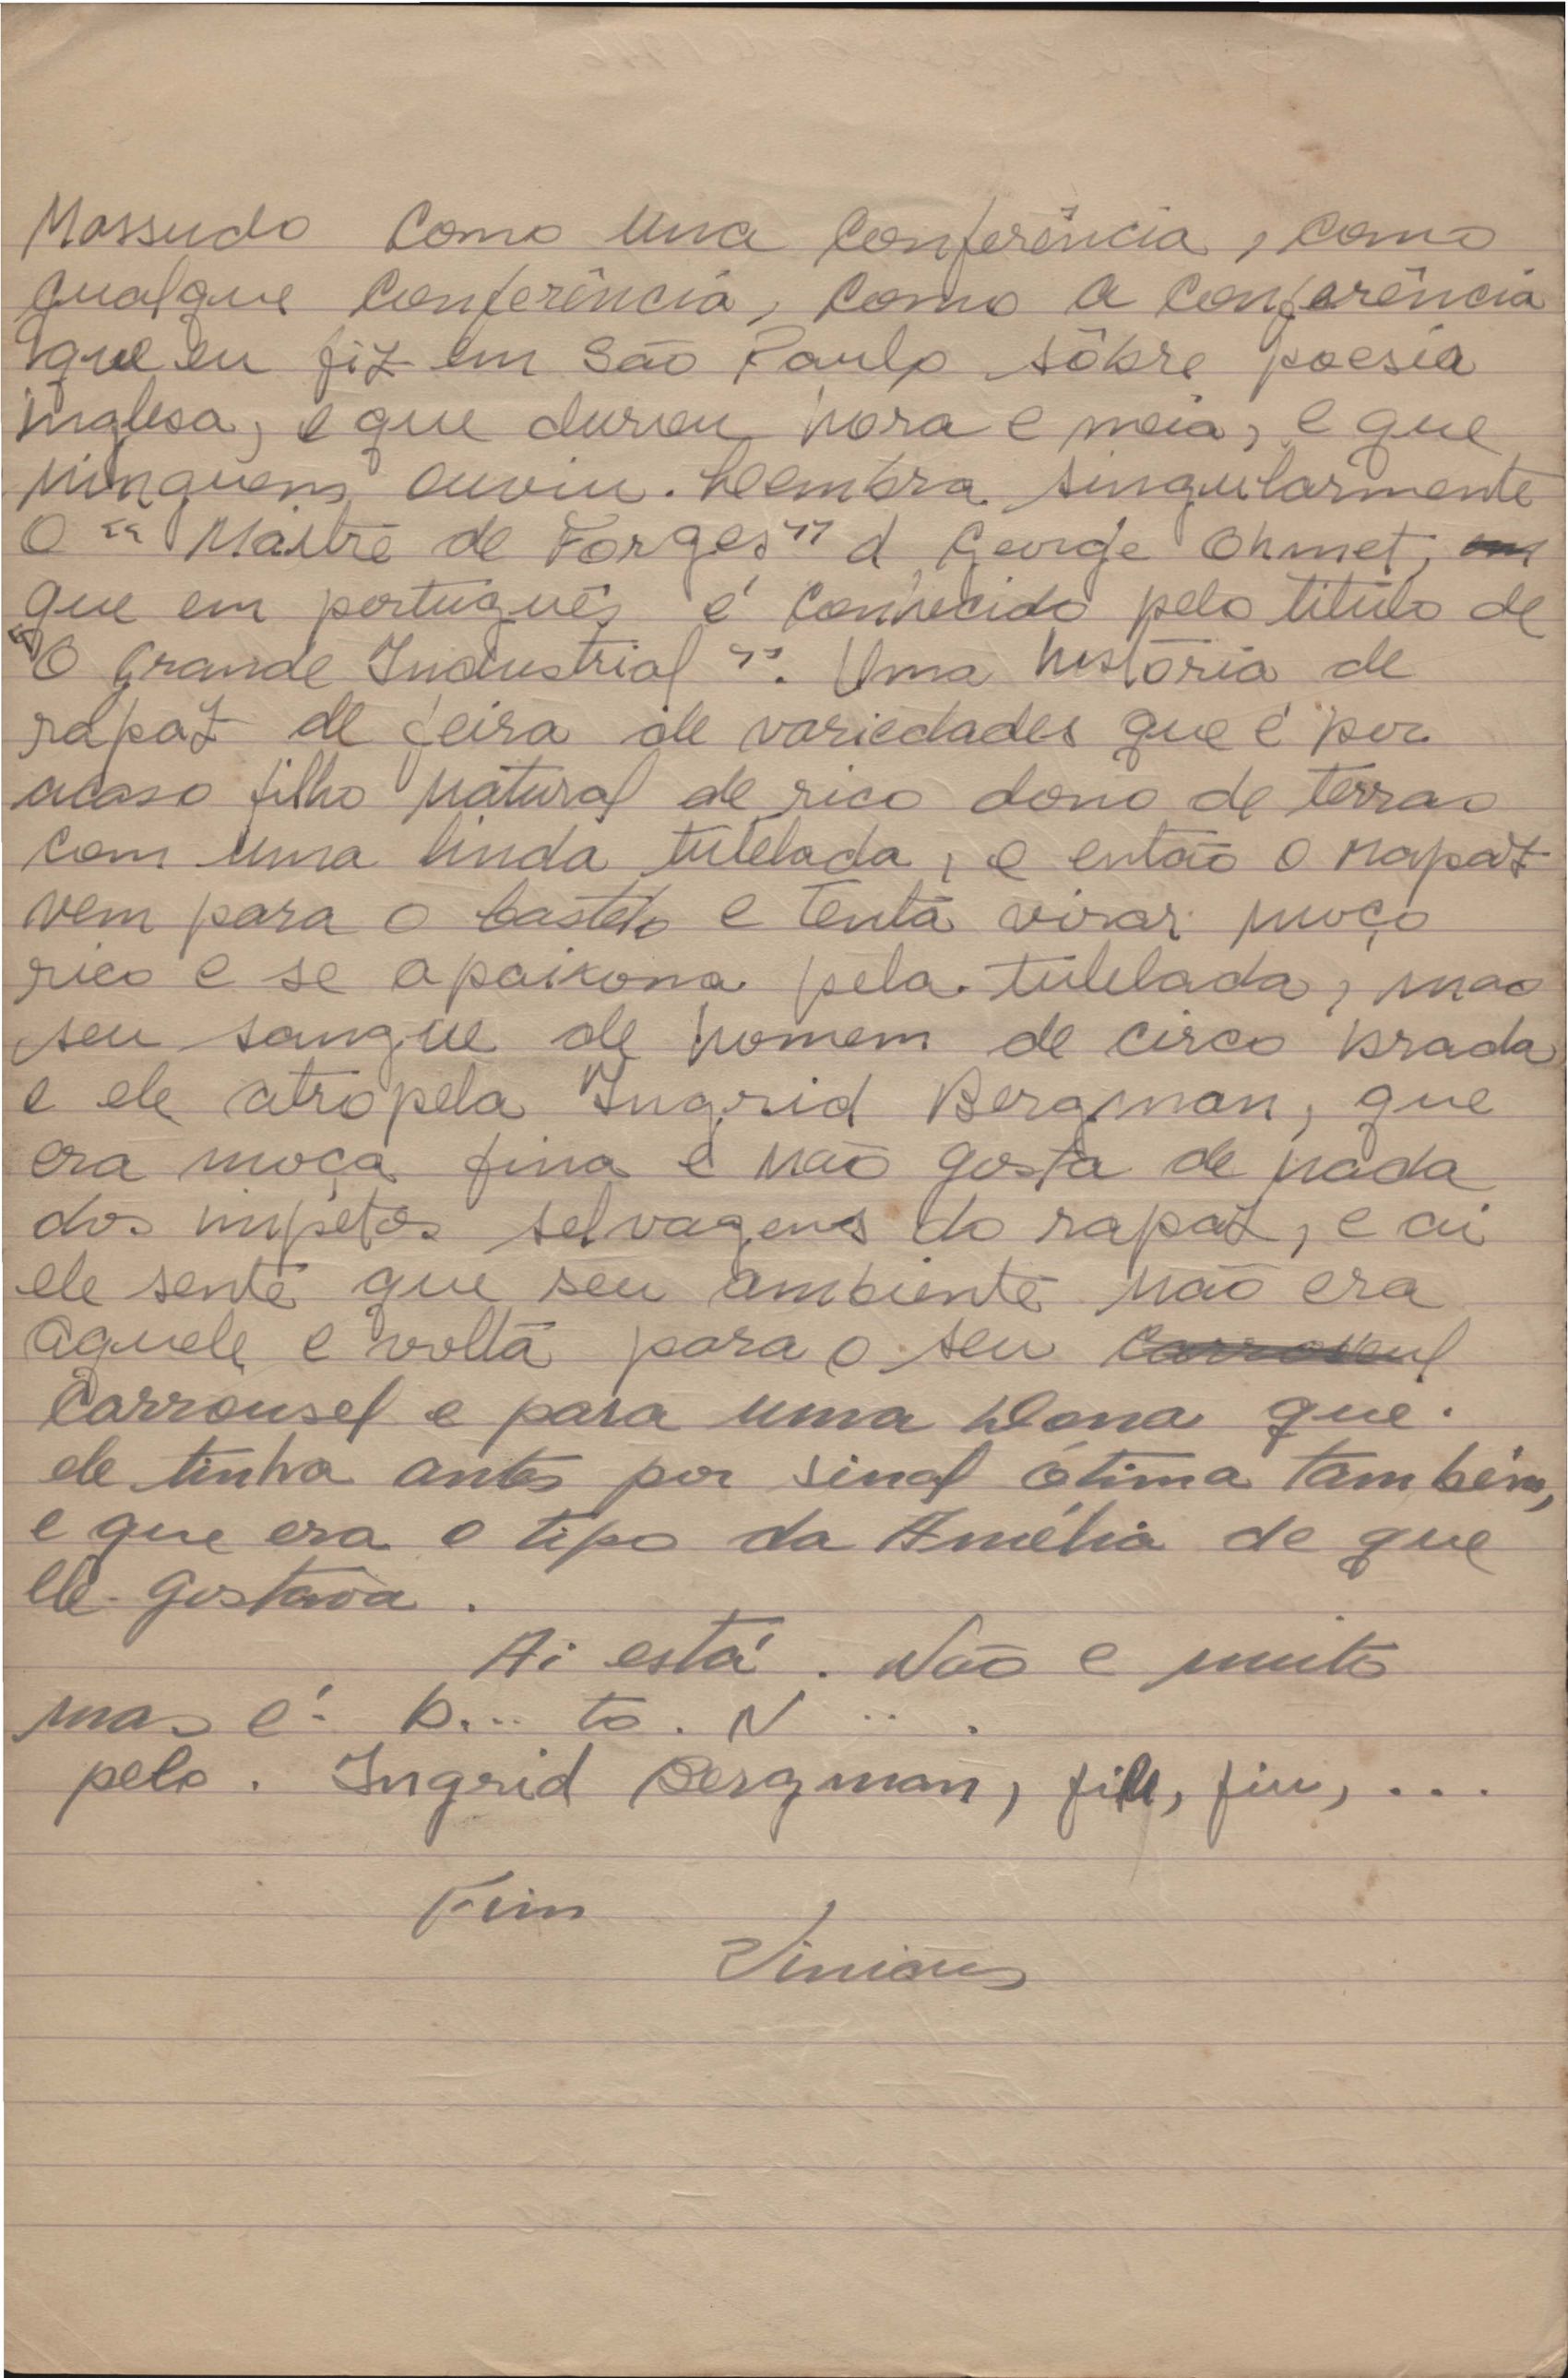 Massudo como uma conferência, como
qualque conferência, como a conferência
que eu fiz em São Paulo sôbre poesia
inglesa, e que durou hora e meia, e que
ninguem ouviu. Lembra singularmente
O "Maitre de Forges" d George Ohmet,
que em português é conhecido pelo titulo de
"O Grande Industrial". Uma história de
rapaz de feira de variedades que é por
acaso filho natural de rico dono de terras
com uma linda tutelada, e então o rapaz
vem para o castelo e tenta virar moço
rico e se apaixona pela tutelada, mas
seu sangue de homem de circo brada
e ele atropela Ingrid Bergman, que
era moça fina e não gosta de nada
dos impetos selvagens do rapaz, e ai
ele sente que seu ambiente não era
aquele e volta para o seu
Carrousel e para uma dona que
ele tinha antes por sinal ótima também,
e que era o tipo da Amélia de que
ele gostava.
Ai está. Não e muito
mas é. b... to. N ...
pelo. Ingrid Bergman, fiu, fiu, ...
Fim
Vinicius